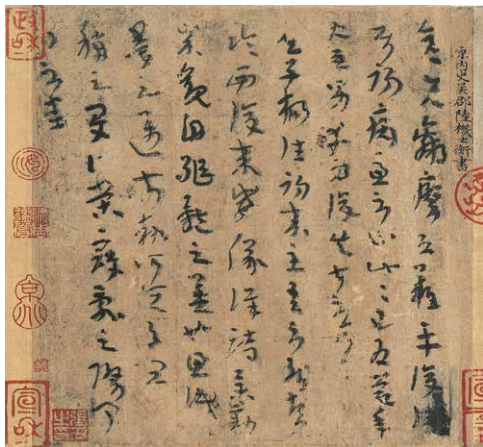 晉內史吳郡陸機士衡書
彥先羸瘵恐難平復往
屬初病慮不止此此已為慶承
使唯男幸為復失前憂耳
吳子楊往初來主吾不能盡
臨西復來威儀詳跱舉動
成觀自軀體之美也思識
量之邁前執所恒有宜
稱之夏伯榮寇亂之際聞
問不悉
政和
宣和
宣和